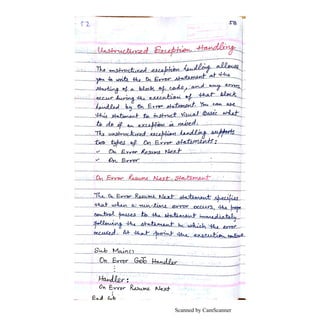 52
50
Unstructured Exception Handling
The unstructured exception handling allows
you to write the On Error statement at the
starting of a block of code, and any errors
occur during the execution of that block
handled by On Error statement. You can use
this statement to instruct Visual Basic what
to do if an exception is raised.
The unstructured exception handling supports
two types of On Error statements:
On Error Resume Next
On Error
On Error Resume Next Statement
The On Error Resume Next statement specifies
that when a run-time error occurs, the
control passes to the statement immediately
following the statement in which the error
occured. At that point the execution
Sub Main()
On Error GoTo Handler
Handler:
On Error Resume Next
End Sub
Scanned by CamScanner